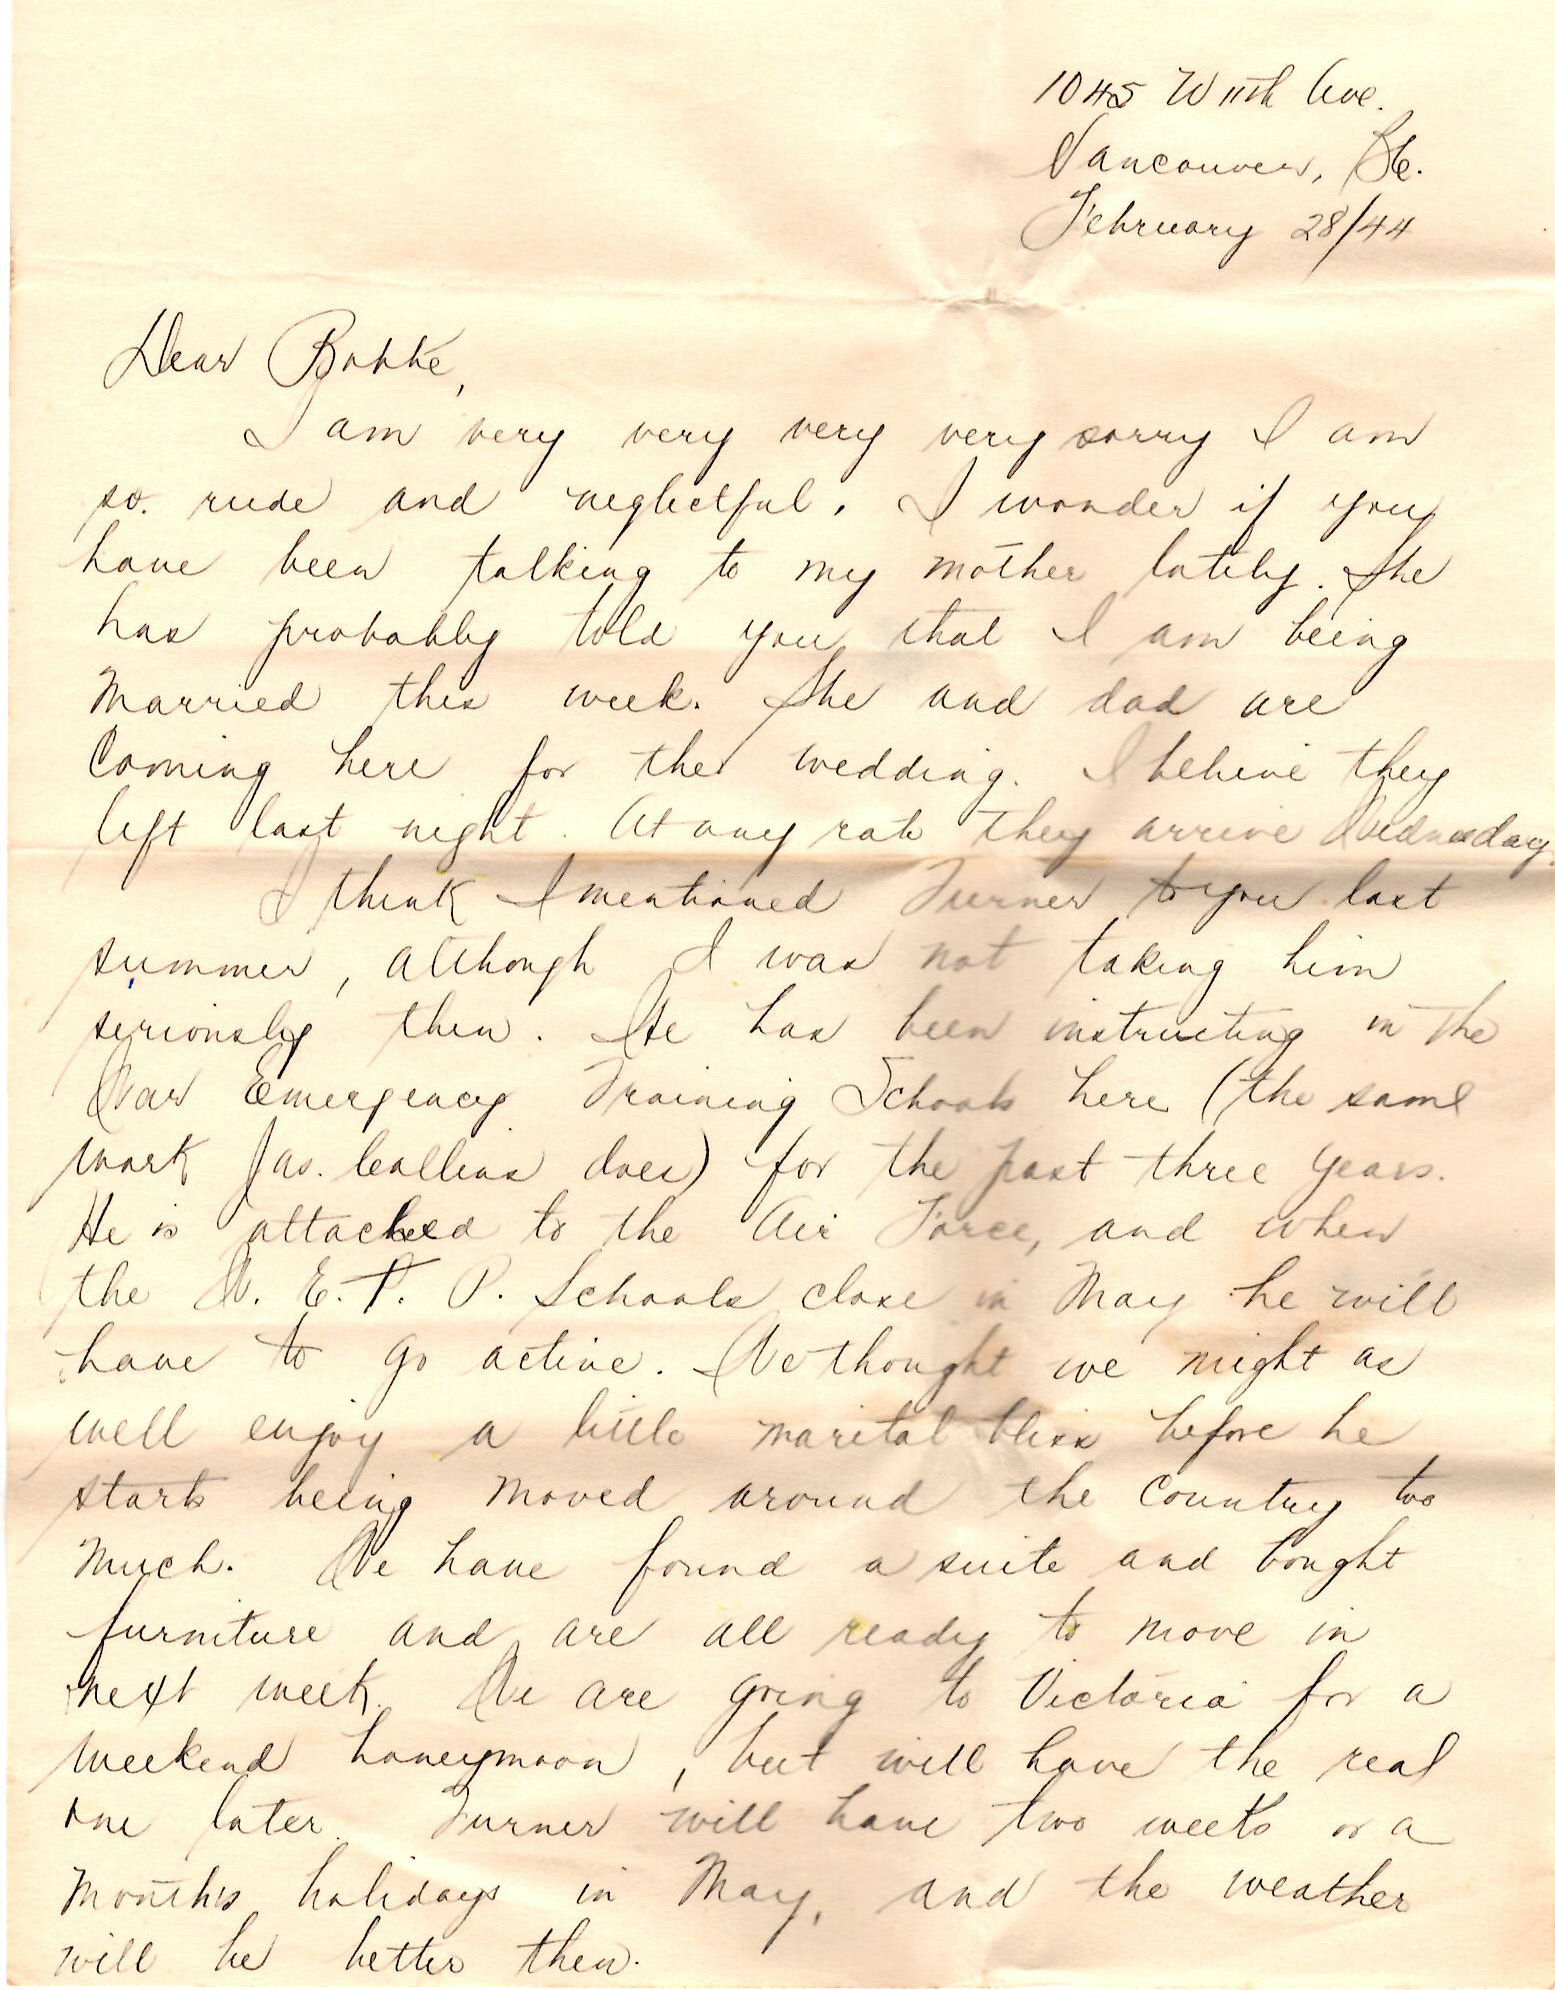 1045 W 11th Ave.
Vancouver, B.C.
February 28/44
Dear Bobbe,
I am very very very very sorry I am
so rude and neglectful. I wonder if you
have been talking to my mother lately. She
has probably told you that I am being
married this week. She and dad are
coming here for the wedding. I believe they
left last night. At any rate they arrive Wednesday.
I think I mentioned Turner to you last
summer, although I was not taking him
seriously then. He has been instructing in the
War Emergency Training Schools here (the same
work Jas. Collins does) for the past three years.
He is attached to the Air Force, and when
the W. E. T. P. Schools close in May he will
have to go active. We thought we might as
well enjoy a little marital bliss before he
starts being moved around the country too
much. We have found a suite and bought
furniture and are all ready to move in
next week. We are going to Victoria for a
weekend honeymoon, but will have the real
one later. Turner will have two weeks or a
month's holidays in May, and the weather
will be better then.